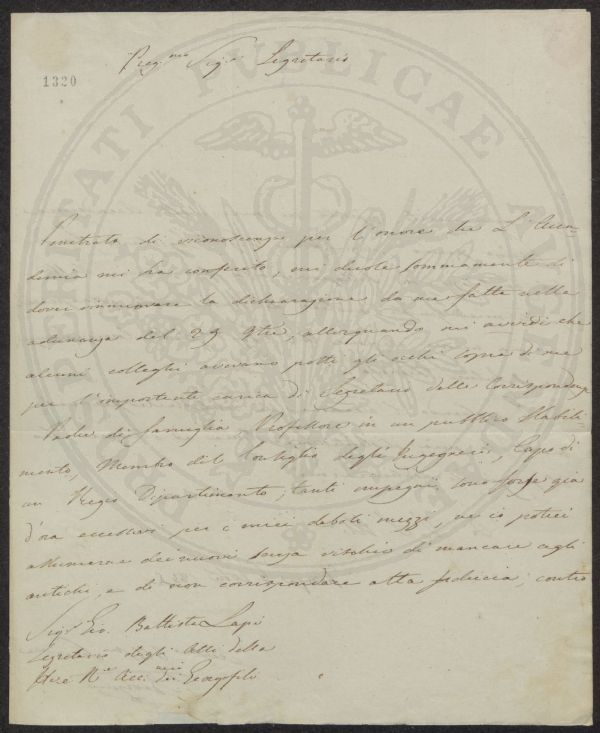 Preg.mo Sig.r Segretario
1320
PROSPERITATI PUBLICAE AUGENDAE
Penetrato di riconoscenza per l'onore che L'Acca-
demia mi ha conferito, mi duole sommamente di
dover rinnuovare la dichiarazione da me fatta nella
adunanza del 29 9bre, allorquando mi avvidi che
alcuni colleghi avevano posti gli occhi sopra di me
per l'importante carica di Segretario delle Corrispondenze
Padre di famiglia, Professore in un pubblico Stabili-
mento, Membro del Consiglio degli Ingegneri, Capo di
un Regio Dipartimento; tanti impegni sono forse già
d'ora eccessivi per i miei deboli mezzi, nè io potrei
assumerne dei nuovi senza rischio di mancare agli
antichi, e di non corrispondere alla fiducia, contro
Sig.r Gio. Battista Lapi
Segretario degli Atti della
R.e Acc. dei Georgofili